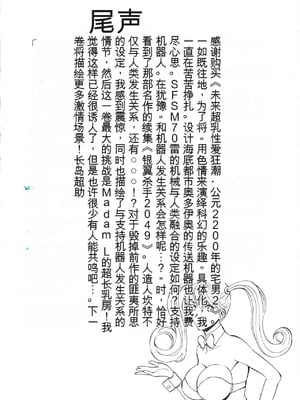 尾声
感谢购买《未来超乳性爱狂潮，公元2200年的宅男2。
一如既往地，为了将。用色情来演绎科幻的乐趣。具体化，我
一直在苦苦挣扎。设计海底都市奥多伊奥的传送机器也让我费
尽心思。SFSM70雷的机械与人类融合的设定如何？支持
机器人。在犹豫。和机器人发生关系会怎样呢…？"时，恰好
看到了那部名作的续集《银翼杀手2049》。人造人坎特不
仅与人类发生关系，还有○○○！？对于毁掉前作的匪夷所思
的设定，我感到震惊，同时也描绘了与支持机器人发生关系的
情节，然后这一卷最大的挑战是Madam L的超长乳房！我
觉得这样已经很诱人了，但是也许很少有人能共鸣吧…。下一
卷将描绘更多激情场景！长岛超助